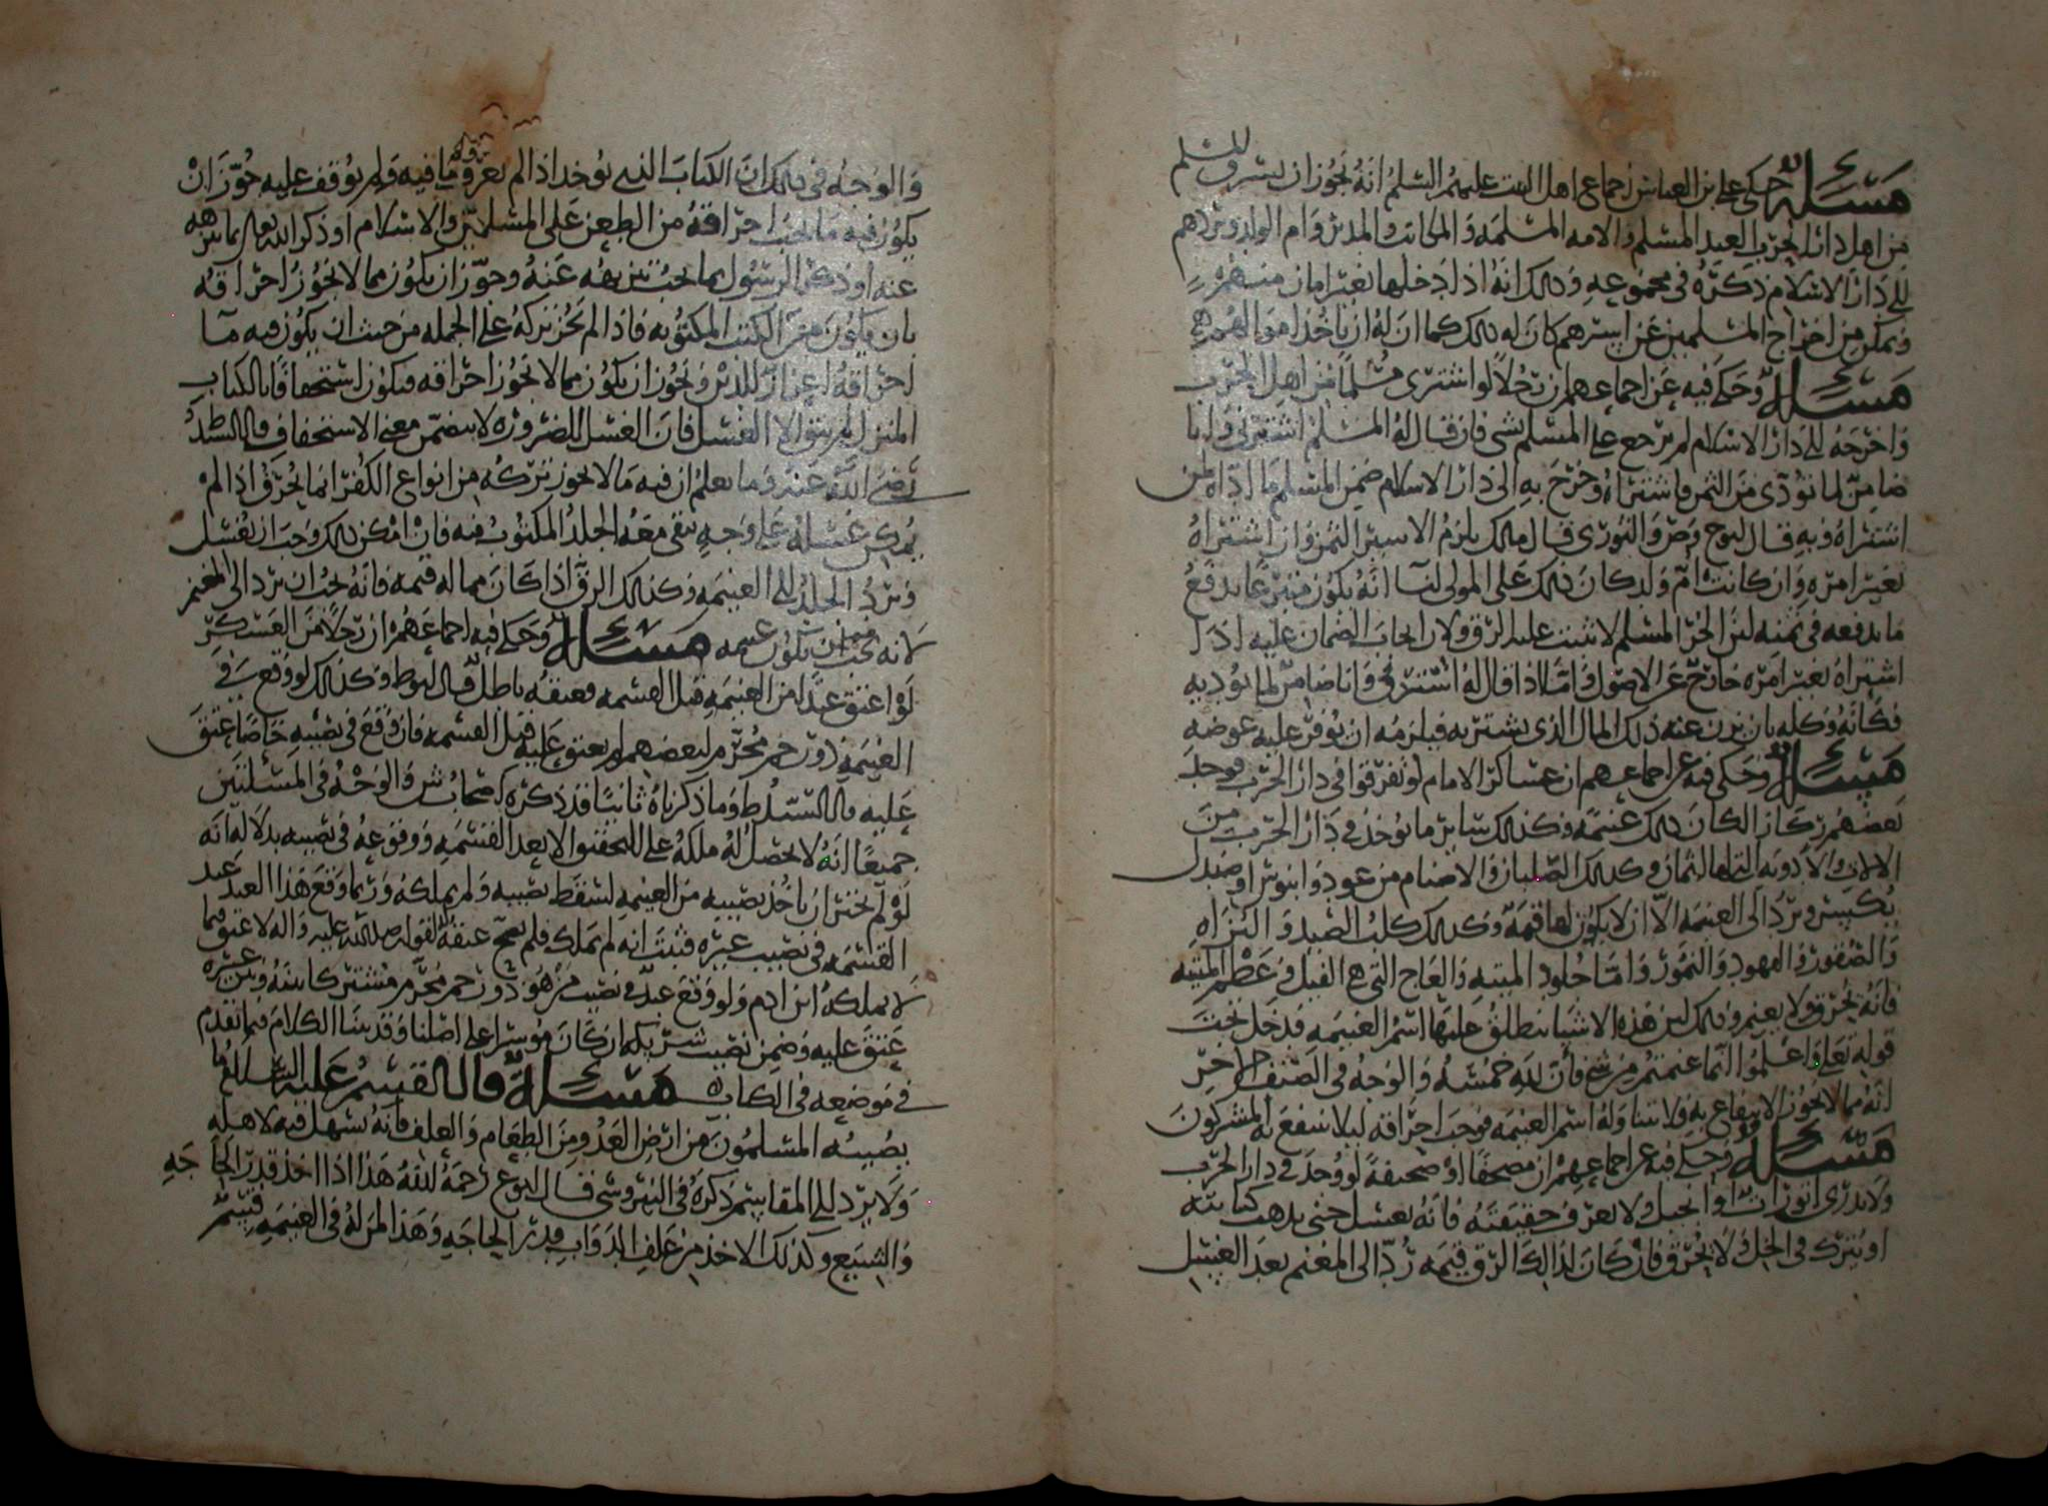 مسألة حكى علي بن العباس إجماع أهل البيت عليهم السلم أنه يجوز أن يسرق المسلم
من أهل دار الحرب العبد المسلم والأمه المسلمه والمكاتب والمدبر وأم الولد ويردهم
إلى دار الاسلام ذكره في مجموعه وذلك أنه إذا دخلها بغير امان منهم
وتمكن من اخراج المسلمين عن أسرهم كان له ذلك كما ان له ان يأخذ أموالهم
مسألة وحكى فيه عن اجماعهم ان رجلا لو اشترى مسلما من اهل الحرب
واخرجه إلى دار الاسلام لم يرجع على المسلم بشي فان قال له المسلم اشترني وانا
ضامن لما تؤدي من الثمن فاشتراه وخرج به إلى دار الاسلام ضمن المسلم ما أداه لمن
اشتراه وبه قال وص والثوري قال مالك يلزم الاسير الثمن وان اشتراه
بغير امره وان كانت أم ولد كان ذلك على المولى لنا انه يكون متبرعا بدفع
ما يدفعه في ثمنه لان الحر المسلم لا يثبت عليه الرق ولان ايجاب الضمان عليه اذا
اشتراه بغير امره خارج عن الاصول فاما اذا قال له اشترني وانا ضامن لما تؤديه
فكأنه وكله بان يزن عنه ذلك المال الذي يشتريه به فيلزمه ان يوفر عليه عوضه
مسألة وحكى فيه عن اجماعهم ان عساكر الامام لو تفرقوا في دار الحرب فوجد
بعضهم ركازا لكان ذلك غنيمة وكذلك سائر ما يوخذ في دار الحرب من
الالات والأدويه التي لها اثمان وكذلك الصلبان والاصنام من عود وابنوس أو صندل
يكسر ويرد إلى الغنيمه الا ان لا يكون لها قيمة وكذلك كلب الصيد والبزاه
والصقور والفهود والنمور واما جلود الميته والعاج التي هي الفيل وعظم الميته
فانه يحرق ولا يغنم وذلك لان هذه الاشيا ينطلق عليها اسم الغنيمه فدخل تحت
قوله تعالى واعلموا انما غنمتم من شي فأن لله خمسه والوجه في الصنف الاخر
انه مما لا يجوز الانتفاع به ولا يتناوله اسم الغنيمه فوجب احراقه ليلا ينتفع به المشركون
مسألة وحكى فيه عن اجماعهم ان مصحفا أو صحيفة لو وجد في دار الحرب
ولا يدرى اتوراة أو انجيل ولا يعرف حقيقته فانه يغسل حتى يذهب كتابته
أو يترك في الخل ولا يحرق فان كان لذلك الرق قيمه رد إلى المغنم بعد الغسل
والوجه في ذلك ان الكتاب الذي يوخذ اذا لم يعرف ما فيه ولم يوقف عليه جوز ان
يكون فيه ما يجب احراقه من الطعن على المسلمين والاسلام أو ذكر الله تعالى بما ينزه
عنه أو ذكر الرسول بما يجب تنزيهه عنه وجوز ان يكون مما لا يجوز احراقه
بان يكون من الكتب المكتوبه فاذا لم يجز تركه على الجمله من حيث ان يكون فيه ما
احراقه اعزاز للدين ويجوز ان يكون مما لا يجوز احراقه فيكون استخفافا بالكتاب
المنزل لم يبق الا الغسل فان الغسل للضروره لا يتضمن معنى الاستخفاف قال السيد ط
رضي الله عنه وما يعلم ان فيه ما لا يجوز تركه من انواع الكفر انما يحرق اذا لم
يمكن غسله على وجه يبقى معه الجلد المكتوب فيه فان امكن ذلك وجب ان يغسل
ويرد الجلد إلى الغنيمه وكذلك الرق اذا كان مما له قيمه فانه يجب ان يرد الى المغنم
لانه يجب ان يكون غنيمه مسألة وحكى فيه اجماعهم ان رجلا من العسكر
لو اعتق عبدا من الغنيمه قبل القسمه فعتقه باطل قال وكذلك لو وقع في
الغنيمه ذو رحم محرم لبعضهم لم يعتق عليه قبل القسمه فان وقع في نصيبه خاصا عتق
عليه قال السيد ط وما ذكرناه ثانيا قد ذكره اصحاب ش والوجه في المسئلتين
جميعا انه لا يحصل له ملكه على التحقيق الا بعد القسمه ووقوعه في نصيبه بدلاله انه
لو لم يختر ان ياخذ نصيبه من الغنيمه لسقط نصيبه ولم يملكه وربما وقع هذا العبد عند
القسمه في نصيب غيره فثبت انه لم يملك فلم يصح عتقه لقوله صلى الله عليه وآله لا عتق فيما
لا يملكه ابن ادم ولو وقع عبد في نصيب من هو ذو رحم محرم مشتركا بينه وبين غيره
عتق عليه وضمن نصيب شريكه ان كان موسرا على اصلنا وقد بينا الكلام فيما تقدم
في موضعه في الكتاب مسألة قال القسم عليه السلام ما
يصيبه المسلمون من ارض العدو من الطعام والعلف فانه يسهل فيه لاهله
ولا يرد إلى المقاسم ذكره في النيروسي قال رحمه الله هذا اذا اخذ قدر الحاجه
والشبع وكذلك الاخذ من علف الدواب بقدر الحاجه وهذا لمن له في الغنيمه قسم